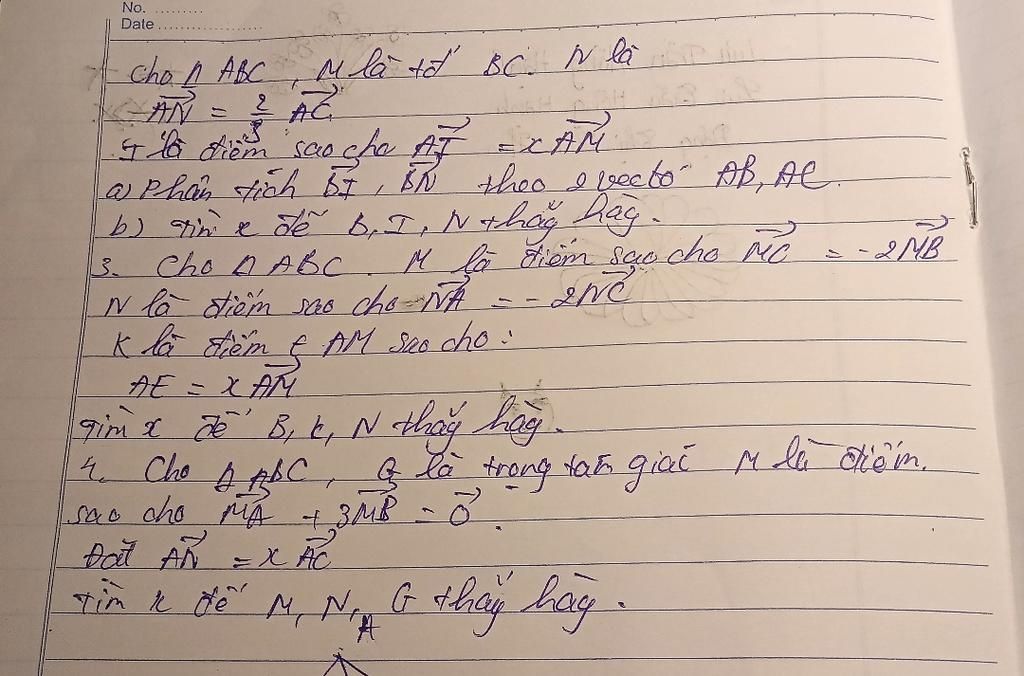 No. .........
Date ..................
Cho Δ ABC , M là tđ BC. N là
AN = 2/3 AC
I là điểm sao cho AI = x AM
a) Phân tích BI , BN theo 2 vectơ AB, AC.
b) Tìm x để B, I, N thẳg hàg.
3. Cho Δ ABC . M là điểm sao cho MC = -2MB
N là điểm sao cho NA = -2NC
K là điểm ∈ AM sao cho :
AE = x AM
Tìm x để B, K, N thẳg hàg.
4. Cho Δ ABC , G là trọng tâm giác M là điểm.
sao cho MA + 3MB = 0 .
Đặt AN = x AC
Tìm x để M, N, G thẳg hàg .
A